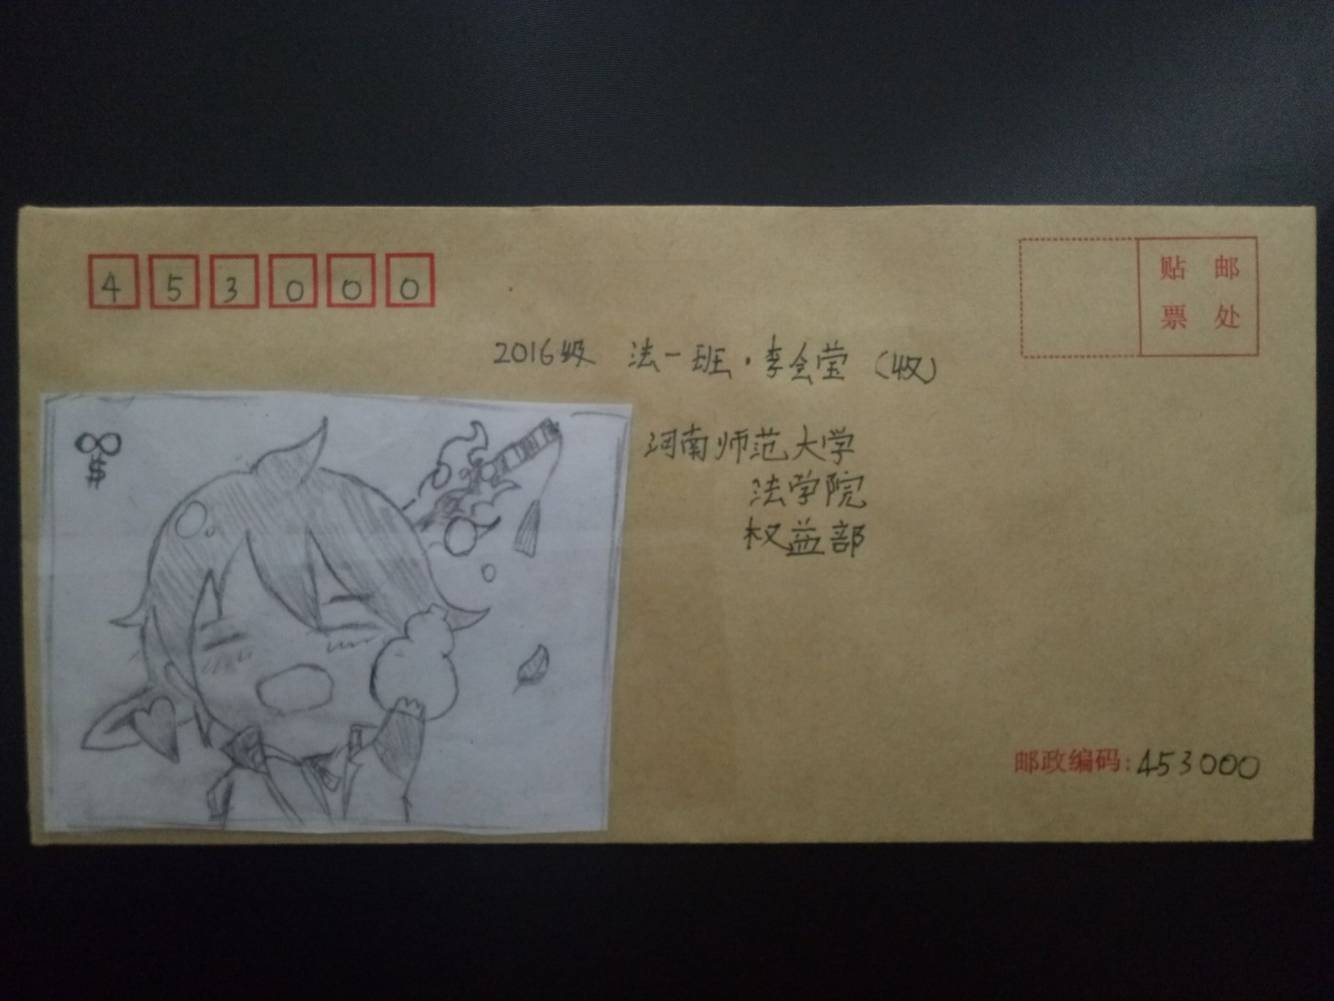 453000
贴 邮
票 处
2016级 法一班·李会莹(收)
河南师范大学
法学院
权益部
$
邮政编码:453000